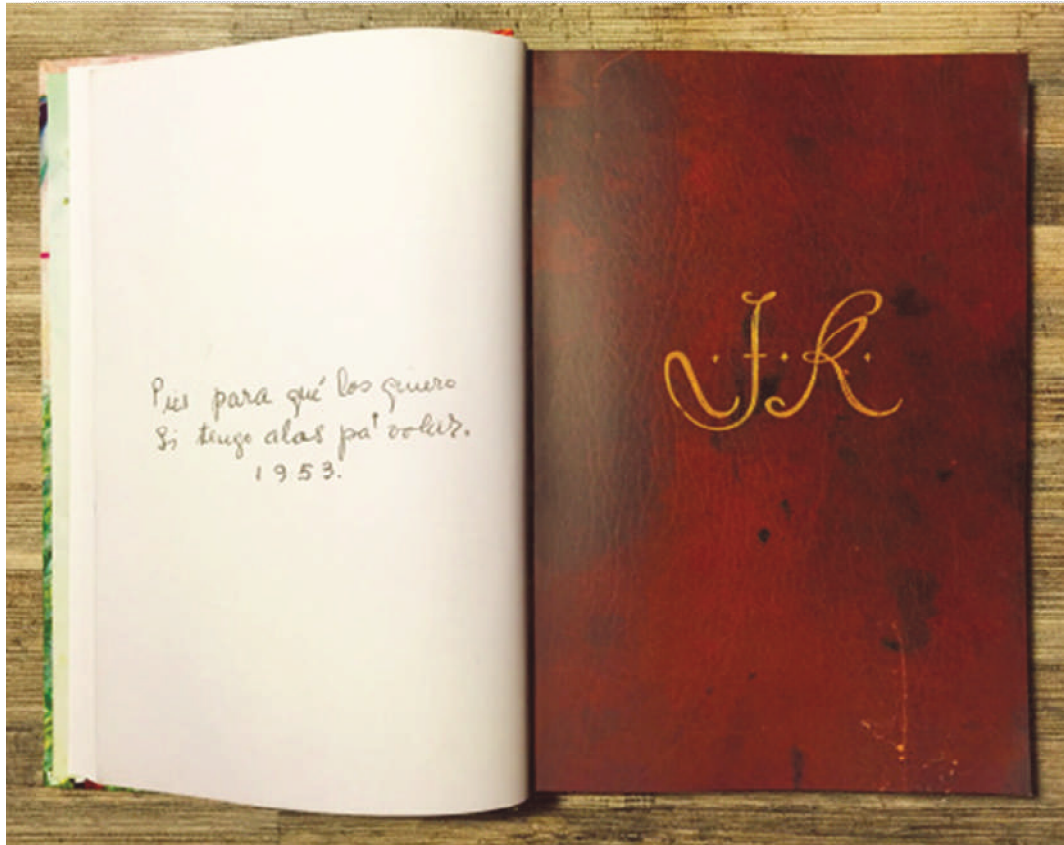 Pies para qué los quiero
Si tengo alas pa' volar.
1953.
J.K.